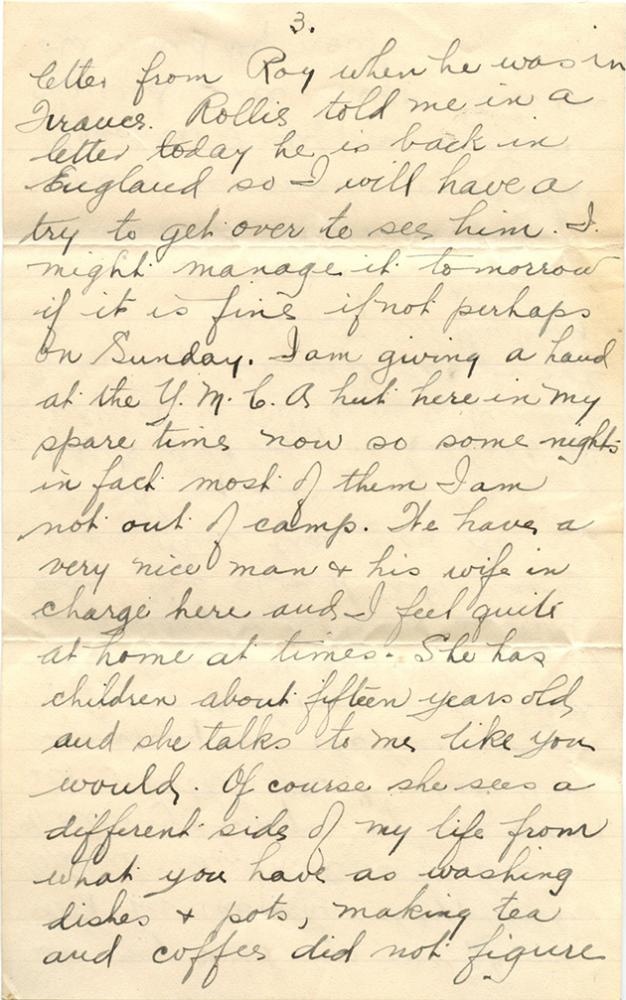 3.
letter from Roy when he was in
France. Rollie told me in a
letter today he is back in
England so I will have a
try to get over to see him. I
might manage it tomorrow
if it is fine if not perhaps
on Sunday. I am giving a hand
at the Y. M. C. A hut here in my
spare time now so some nights
in fact most of them I am
not out of camp. We have a
very nice man & his wife in
charge here and I feel quite
at home at times. She has
children about fifteen years old
and she talks to me like you
would. Of course she sees a
different side of my life from
what you have as washing
dishes & pots, making tea
and coffee did not figure